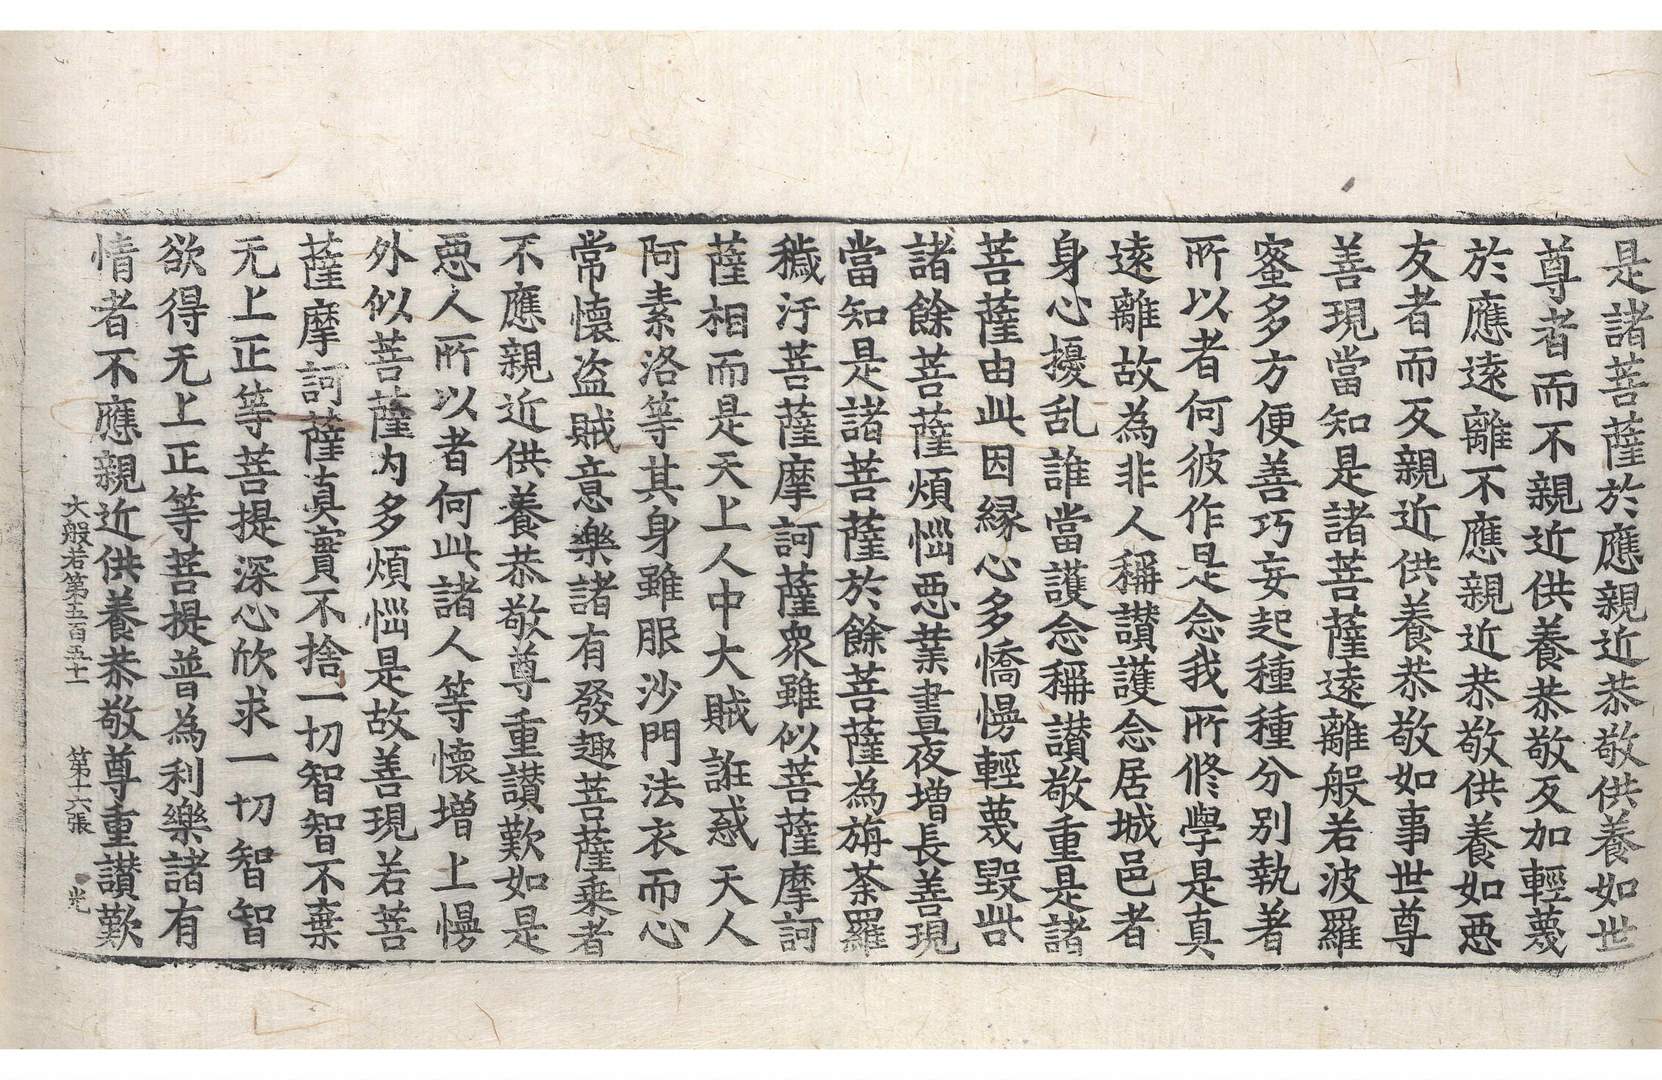 是諸菩薩於應親近恭敬供養如世
尊者而不親近供養恭敬反加輕蔑
於應遠離不應親近恭敬供養如惡
友者而反親近供養恭敬如事世尊
善現當知是諸菩薩遠離般若波羅
蜜多方便善巧妄起種種分別執著
所以者何彼作是念我所修學是真
遠離故為非人稱讃護念居城邑者
身心擾乱誰當護念稱讃敬重是諸
菩薩由此因縁心多憍慢輕蔑毀呰
諸餘菩薩煩惱惡業晝夜増長善現
當知是諸菩薩於餘菩薩為旃荼羅
穢汙菩薩摩訶薩衆雖似菩薩摩訶
薩相而是天上人中大賊誑惑天人
阿素洛等其身雖服沙門法衣而心
常懷盗賊意樂諸有發趣菩薩乘者
不應親近供養恭敬尊重讃歎如是
惡人所以者何此諸人等懷増上慢
外似菩薩内多煩惱是故善現若菩
薩摩訶薩真實不捨一切智智不棄
无上正等菩提深心欣求一切智智
欲得无上正等菩提普為利樂諸有
情者不應親近供養恭敬尊重讃歎
大般若第五百五十一 第十六張 光